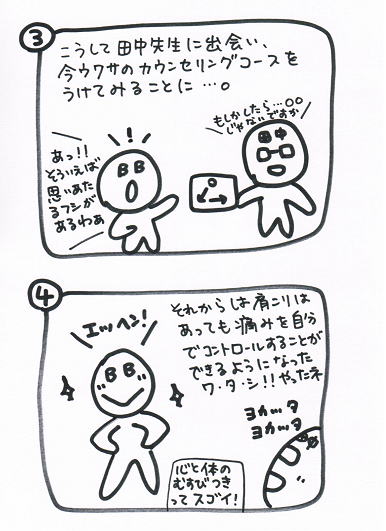 3
こうして田中先生に出会い、
今ウワサのカウンセリングコースを
うけてみることに…。
もしかしたら…○○
じゃないですか
田中
あっ!!
そういえば
思いあた
るフシが
あるわぁ
!
BB
4
それからは肩こりは
あっても痛みを自分
でコントロールすることが
できるようになった
ワ・タ・シ!!やったネ
エッヘン!
BB
ヨカッタ
ヨカッタ
心と体の
むすびつき
ってスゴイ!